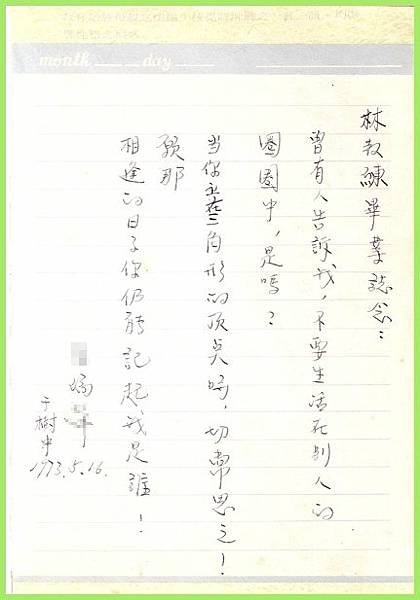 month day
林教練畢業誌念：
曾有人告訴我，不要生活在別人的
圈圈中，是嗎？
当你立在三角形的顶点，切常思之！
願那
相逢的日子你仍能記起我是誰！
于樹中
1973.5.16.